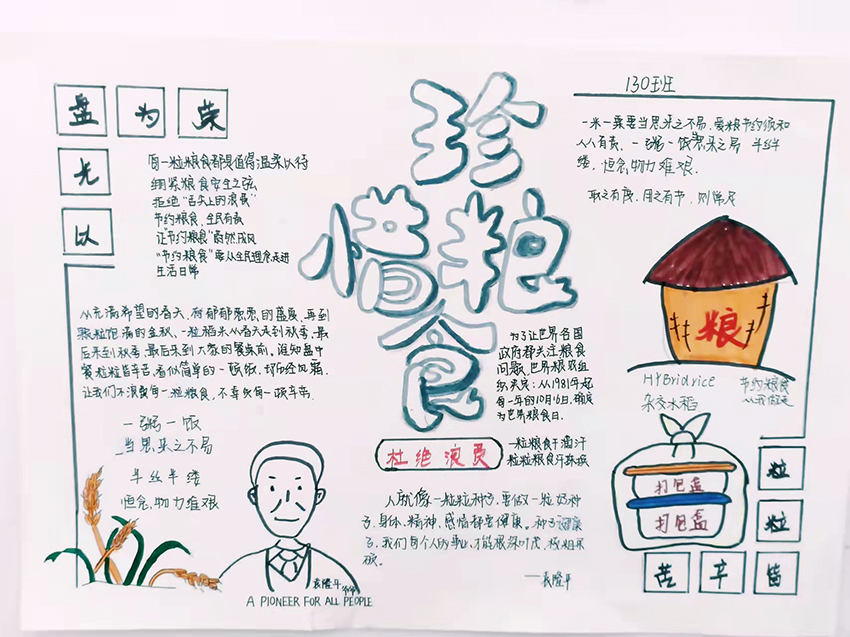 盘 为 荣
光
以
每一粒粮食都要值得温柔以待
绷紧粮食安全之弦
拒绝“舌尖上的浪费”
节约粮食、全民有责
让“节约粮食”蔚然成风
“节约粮食”要从全民理念走进
生活日常
从充满希望的春天,府郁郁葱葱,的盛夏,再到
颗粒饱满的金秋、一粒稻米从春天来到秋季,最
后来到秋季,最后来到大家的餐桌前。谁知盘中
餐粒粒皆辛苦,看似简单的一顿饭,却历经风霜.
让我们不浪费每一粒粮食,不辜负每一顿辛苦.
一粥一饭
当思来之不易
半丝半缕
恒念物力难艰
袁隆平
A PIONEER FOR ALL PEOPLE
珍
惜粮
食
为了让世界各国
政府都关注粮食
问题,世界粮农组
织决定:从1981年起
每一年的10月16日,确定
为世界粮食日.
杜绝浪费
一粒粮食千滴汗
粒粒粮食汗珠换
人就像一粒粒种子,要做一粒好种
子,身体、精神、感情都要健康。种子健康
了,我们每个人的事业,才能根深叶茂,枝粗果
硕。
——袁隆平
130班
一米一粟要当思来之不易.爱粮节约须和
人人有责、一粥一饭思来之易 半丝半
缕,恒念,物力难艰.
取之有度,用之有节,则常足
粮
HYBrid rice
杂交水稻
节约粮食
从我做起
打包盒
打包盒
粒
粒
苦 辛 皆